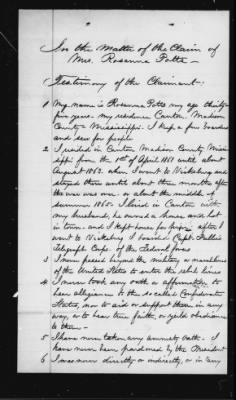 In the Matter of the Claim of
Mrs. Rosanna Potts -
Testimony of the Claimant -
1 My name is Rosanna Potts my age thirty-
five years. my residence Canton, Madison
County Mississippi. I keep a few boarders
and sew for people.
2 I resided in Canton Madison County Missis-
sippi from the 1st of April 1861 until about
August 1863. when I went to Vicksburg and
stayed there until about three months after
the war was over. or about the middle of
summer 1865. I lived in Canton with
my husband, he owned a house and lot
in town. and I kept house for him. after I
went to Vicksburg I boarded Capt. Fuller's
Telegraph Corps. of the Federal forces
3 I never passed beyond the military or naval lines
of the United States to enter the rebel lines
4 I never took any oath or affirmation to
bear allegiance to the so-called Confederate
States, nor to aid or support them in any
way, or to bear true faith, or yield obedience
to them -
5 I have never taken any amnesty oath. I
have never been pardoned by the President
6 I was never directly or indirectly, or in any